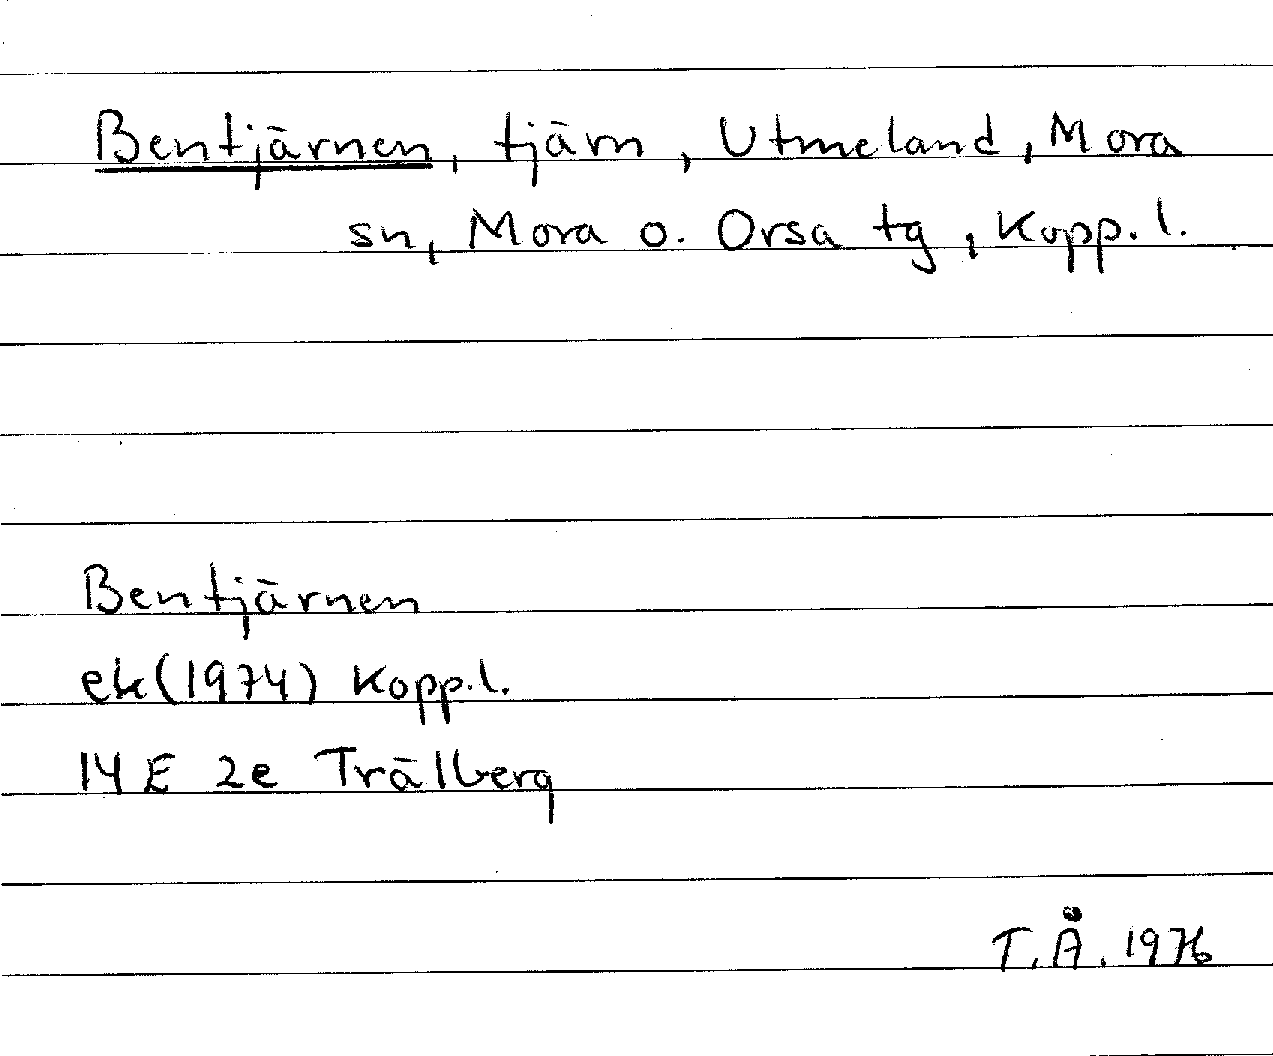 Bentjärnen, tjärn, Utmeland, Mora
sn, Mora o. Orsa tg, Kopp. l.
Bentjärnen
ek (1974) Kopp. l.
14 E 2e Trälberg
T. Å. 1976